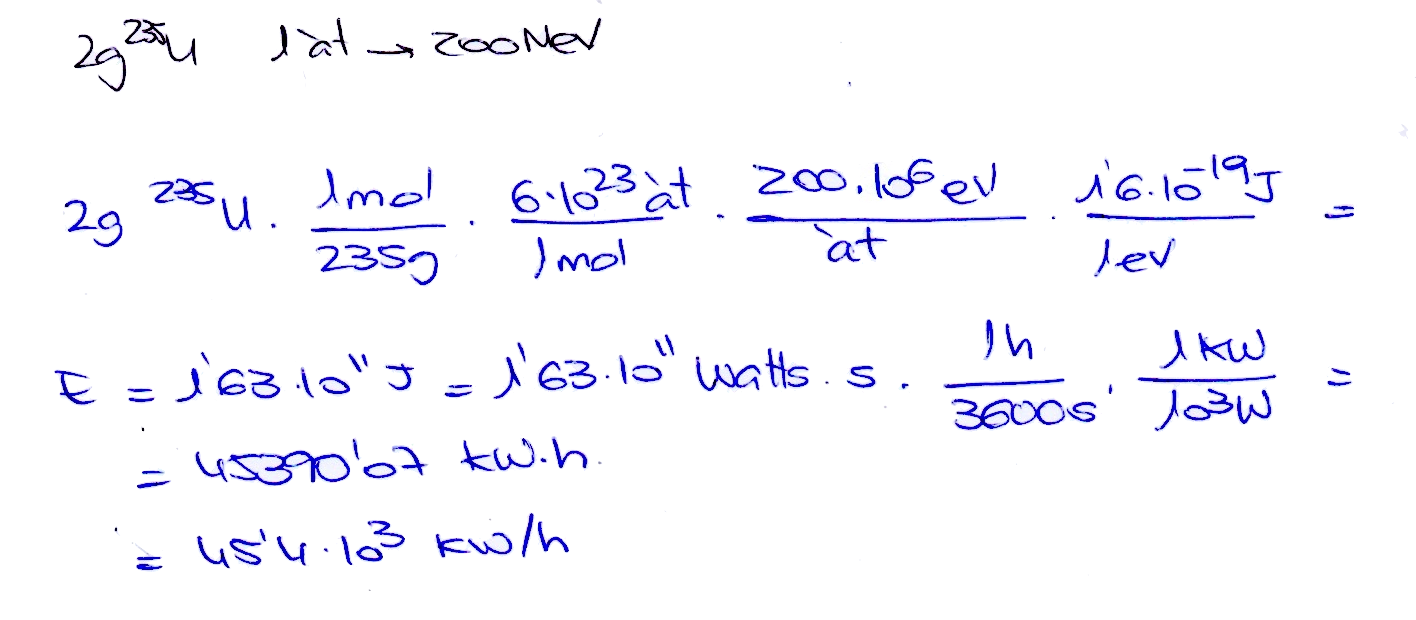 2g ²³⁵U 1 àt → 200 MeV
2g ²³⁵U · 1mol/235g · 6·10²³ àt/1mol · 200·10⁶ eV/àt · 1'6·10⁻¹⁹ J/1eV =
E = 1'63·10¹¹ J = 1'63·10¹¹ Watts · s · 1h/3600s · 1kW/10³W =
= 45390'07 kW·h.
= 45'4·10³ kW/h